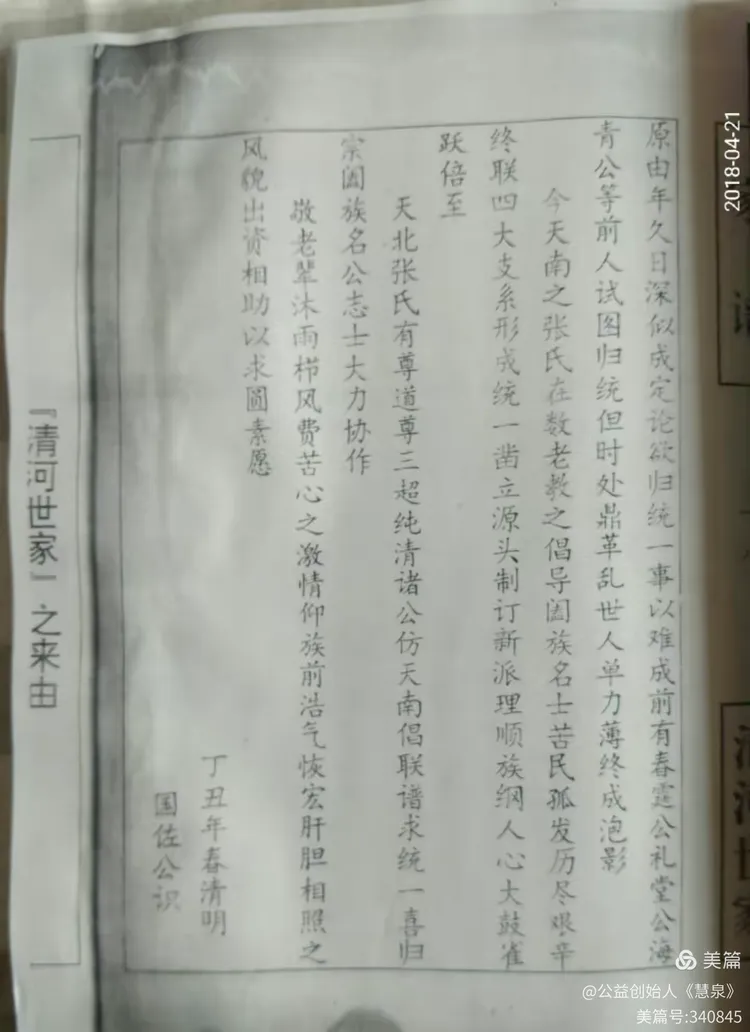 原由年久日深似成定论欲归统一事以难成前有春霆公礼堂公海
青公等前人试图归统但时处鼎革乱世人单力薄终成泡影
今天南之张氏在数老教之倡导阖族名士苦民孤发历尽艰辛
终联四大支系形成统一凿立源头制订新派理顺族纲人心大鼓雀
跃倍至
天北张氏有尊道尊三超纯清诸公仿天南倡联谱求统一喜归
宗阖族名公志士大力协作
敬老辈沐雨栉风费苦心之激情仰族前浩气恢宏肝胆相照之
风貌出资相助以求圆素愿
丁丑年春清明
国佐公识
『清河世家』之来由
2018-04-21
美篇
@公益创始人《慧泉》
美篇号:340845